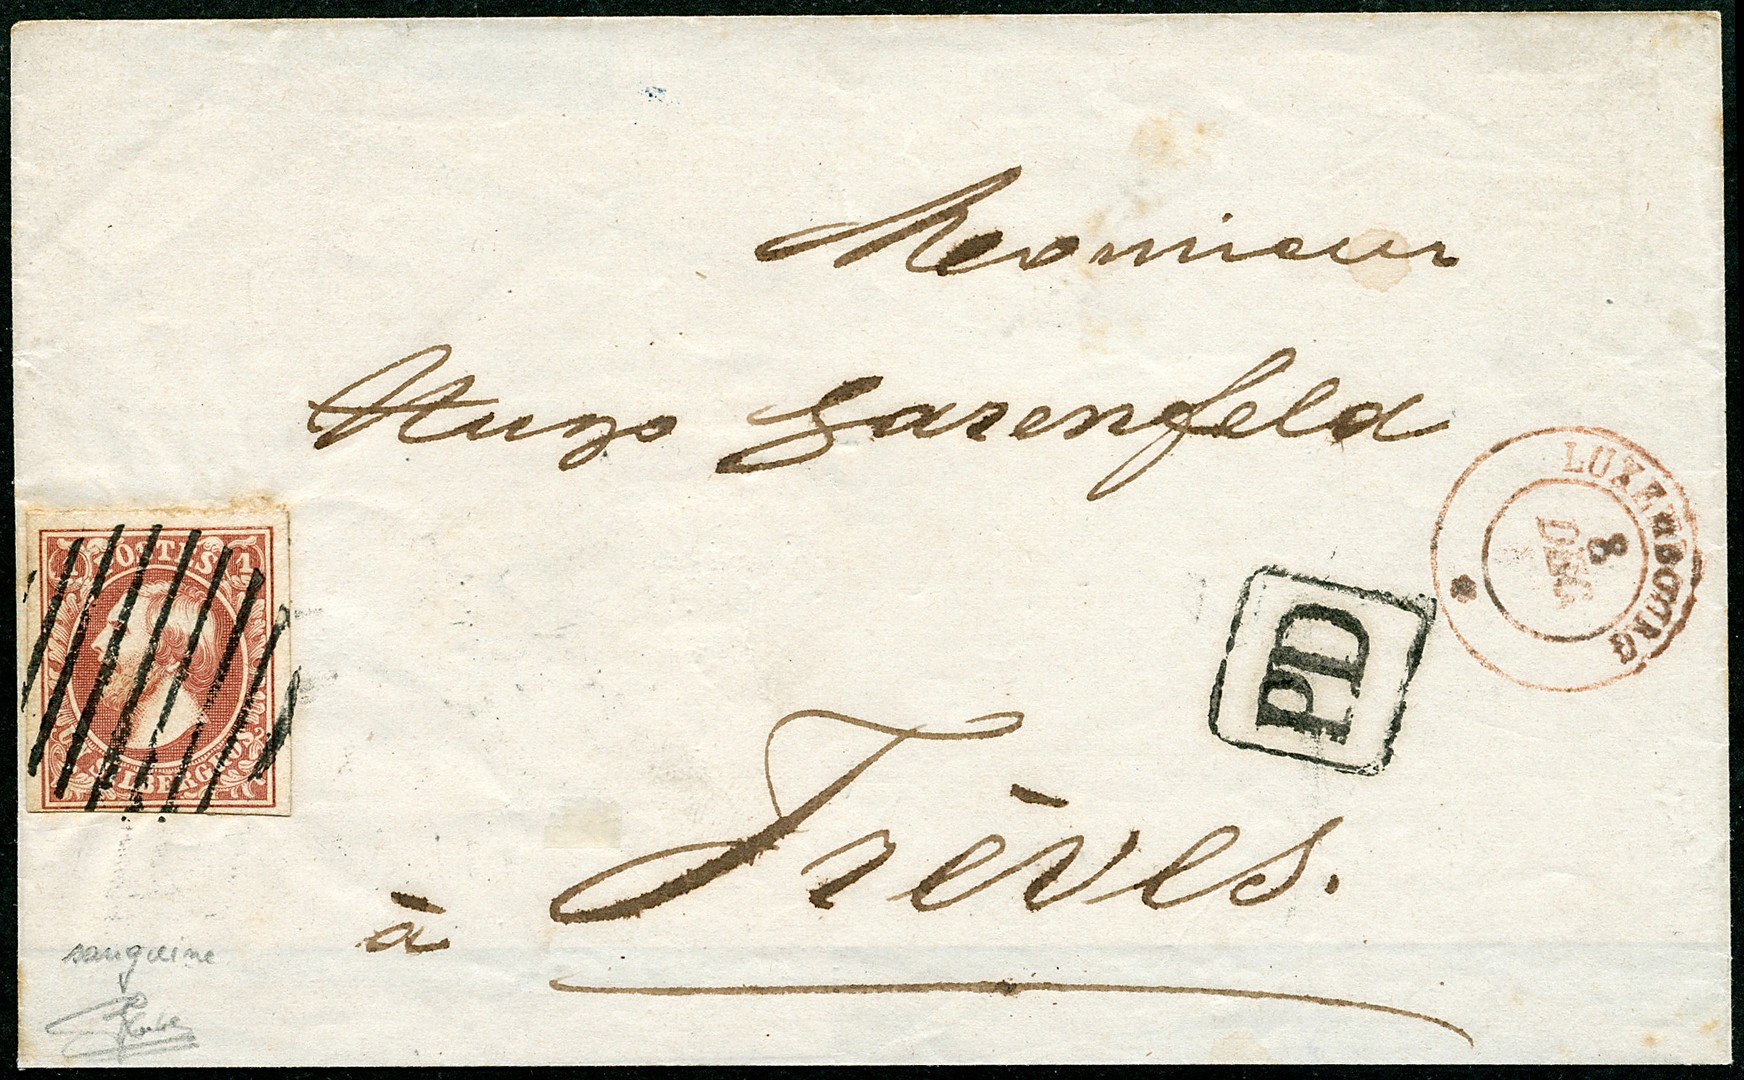 Monsieur
Hugo Garenfeld
à Trèves.
PD
LUXEMBOURG
8
DEC
1 POSTES 1
UN SILBERGROS
sanguine